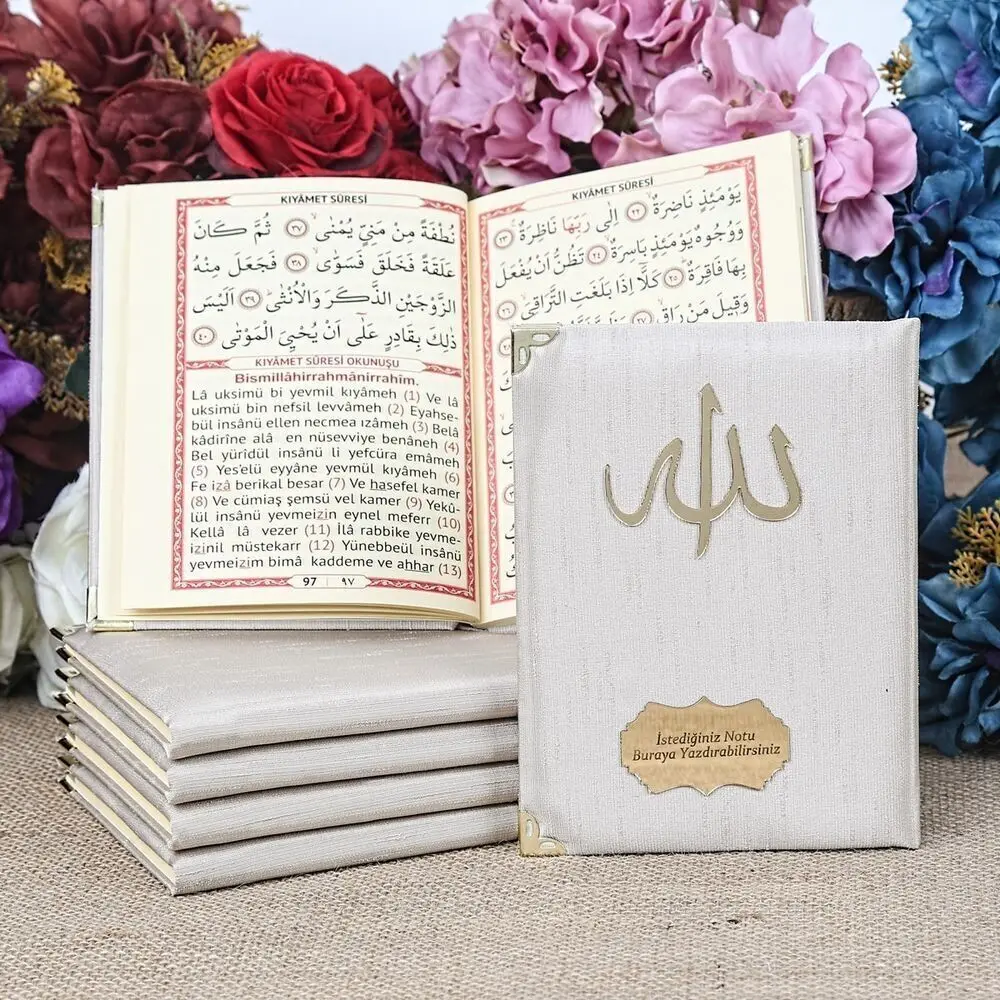 KIYÂMET SÛRESİ
نُطْفَةً مِنْ مَنِيٍّ يُمْنٰىۙ ﴿٣٧﴾ ثُمَّ كَانَ
عَلَقَةً فَخَلَقَ فَسَوّٰىۙ ﴿٣٨﴾ فَجَعَلَ مِنْهُ
الزَّوْجَيْنِ الذَّكَرَ وَالْاُنْثٰىۜ ﴿٣٩﴾ اَلَيْسَ
ذٰلِكَ بِقَادِرٍ عَلٰٓى اَنْ يُحْيِيَ الْمَوْتٰى ﴿٤٠﴾
KIYÂMET SÛRESİ OKUNUŞU
Bismillâhirrahmânirrahîm.
Lâ uksimü bi yevmil kıyâmeh (1) Ve lâ
uksimü bin nefsil levvâmeh (2) Eyahse-
bül insânü ellen necmea ızâmeh (3) Belâ
kâdirîne alâ en nüsevviye benâneh (4)
Bel yürîdül insânü li yefcüra emâmeh
(5) Yes'elü eyyâne yevmül kıyâmeh (6)
Fe izâ berikal besar (7) Ve hasefel kamer
(8) Ve cümiaş şemsü vel kamer (9) Yekû-
lül insânü yevmeizin eynel meferr (10)
Kellâ lâ vezer (11) İlâ rabbike yevme-
izinil müstekarr (12) Yünebbeül insânü
yevmeizim bimâ kaddeme ve ahhar (13)
97 ٩٧
KIYÂMET SÛRESİ
يَوْمَئِذٍ نَاضِرَةٌۙ ﴿٢٢﴾ اِلٰى رَبِّهَا نَاظِرَةٌۚ ﴿٢٣﴾
وَوُجُوهٌ يَوْمَئِذٍ بَاسِرَةٌۙ ﴿٢٤﴾ تَظُنُّ اَنْ يُفْعَلَ
بِهَا فَاقِرَةٌۜ ﴿٢٥﴾ كَلَّٓا اِذَا بَلَغَتِ التَّرَاقِيَۙ ﴿٢٦﴾
وَق۪يلَ مَنْ رَاقٍۙ ﴿٢٧﴾
الله
İstediğiniz Notu
Buraya Yazdırabilirsiniz